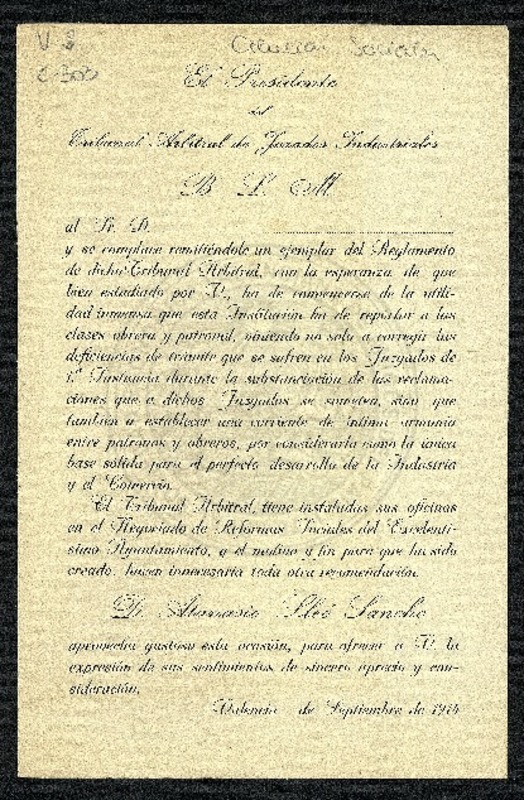 V 2
C-303
El Presidente
del
Tribunal Arbitral de Jurados Industriales
B L M
al Sr. D.
y se complace remitiéndole un ejemplar del Reglamento
de dicho Tribunal Arbitral, con la esperanza de que
bien estudiado por V., ha de convencerse de la utili-
dad inmensa que esta Institución ha de reportar a las
clases obrera y patronal, viniendo no solo a corregir las
deficiencias de trámite que se sufren en los Juzgados de
1.ª Instancia durante la substanciación de las reclama-
ciones que a dichos Juzgados se someten, sino que
también a establecer una corriente de íntima armonía
entre patronos y obreros, por considerarla como la única
base sólida para el perfecto desarrollo de la Industria
y el Comercio.
El Tribunal Arbitral, tiene instaladas sus oficinas
en el Negociado de Reformas Sociales del Excelentí-
simo Ayuntamiento, y el motivo y fin para que ha sido
creado, hacen innecesaria toda otra recomendación.
D. Atanasio Sanchо
aprovecha gustoso esta ocasión, para ofrecer a V. la
expresión de sus sentimientos de sincero aprecio y con-
sideración.
Valencia de Septiembre de 1914